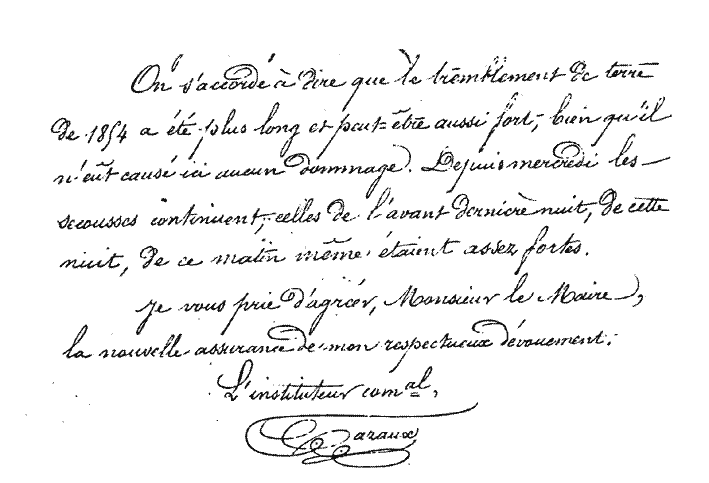 On s'accorde à dire que le tremblement de terre
de 1854 a été plus long et peut-être aussi fort, bien qu'il
n'eût causé ici aucun dommage. Depuis mercredi les
secousses continuent, celles de l'avant dernière nuit, de cette
nuit, de ce matin même étaient assez fortes.
Je vous prie d'agréer, Monsieur le Maire,
la nouvelle assurance de mon respectueux dévouement.
L'instituteur com^al,